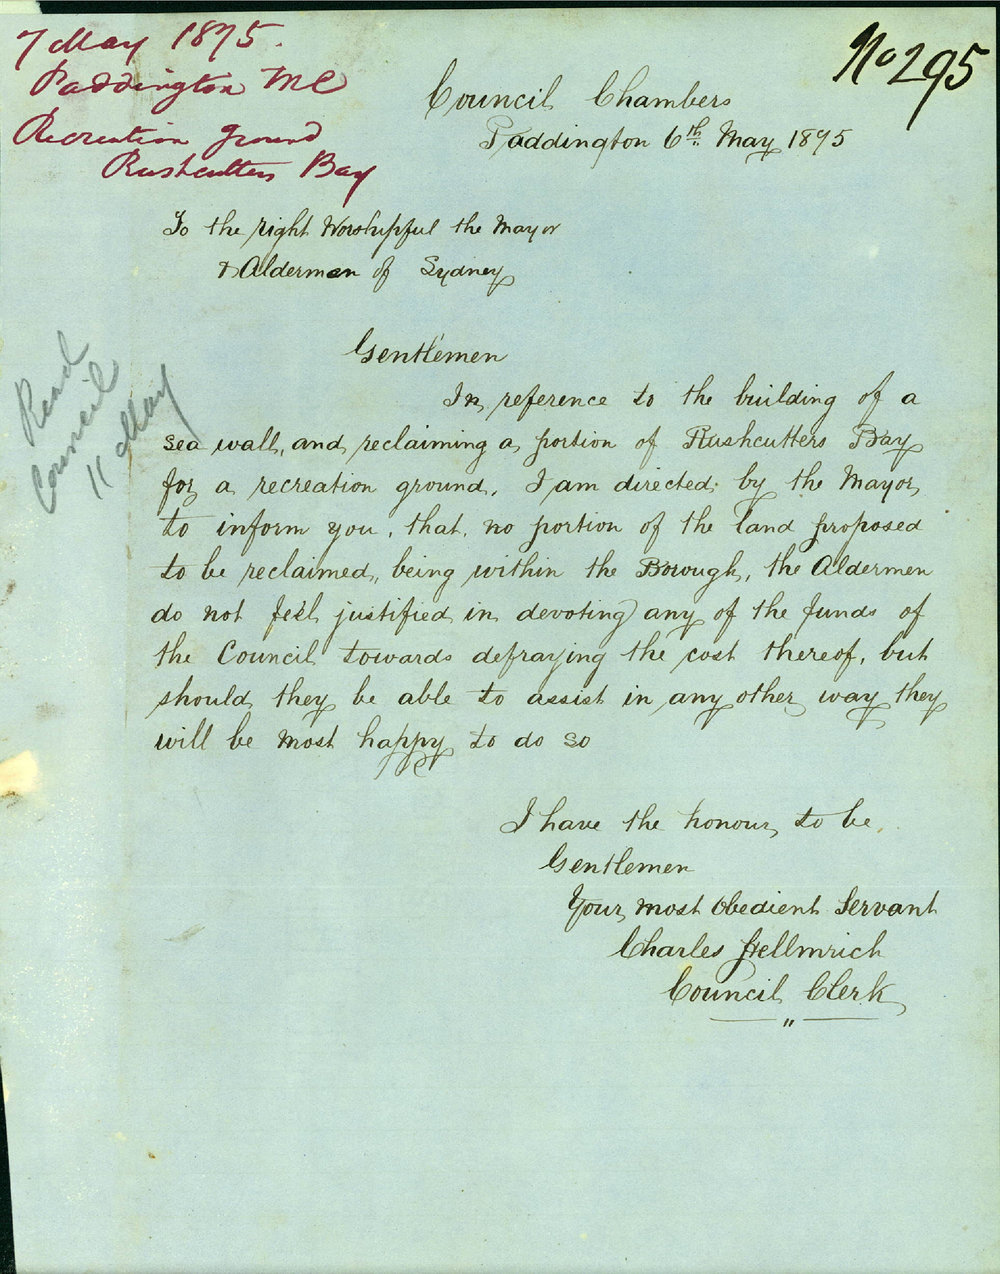 7 May 1875.
Paddington MC
Recreation ground
Rushcutters Bay
No 295
Council Chambers
Paddington 6th May 1875
To the right Worshipful the Mayor
& Aldermen of Sydney
Read
Council
11 May
Gentlemen
In reference to the building of a
sea wall, and reclaiming a portion of Rushcutters Bay
for a recreation ground, I am directed by the Mayor
to inform you, that, no portion of the land proposed
to be reclaimed, being within the Borough, the Aldermen
do not feel justified in devoting any of the funds of
the Council towards defraying the cost thereof, but
should they be able to assist in any other way they
will be most happy to do so
I have the honour to be,
Gentlemen
Your most Obedient Servant
Charles Hellmrich
Council Clerk